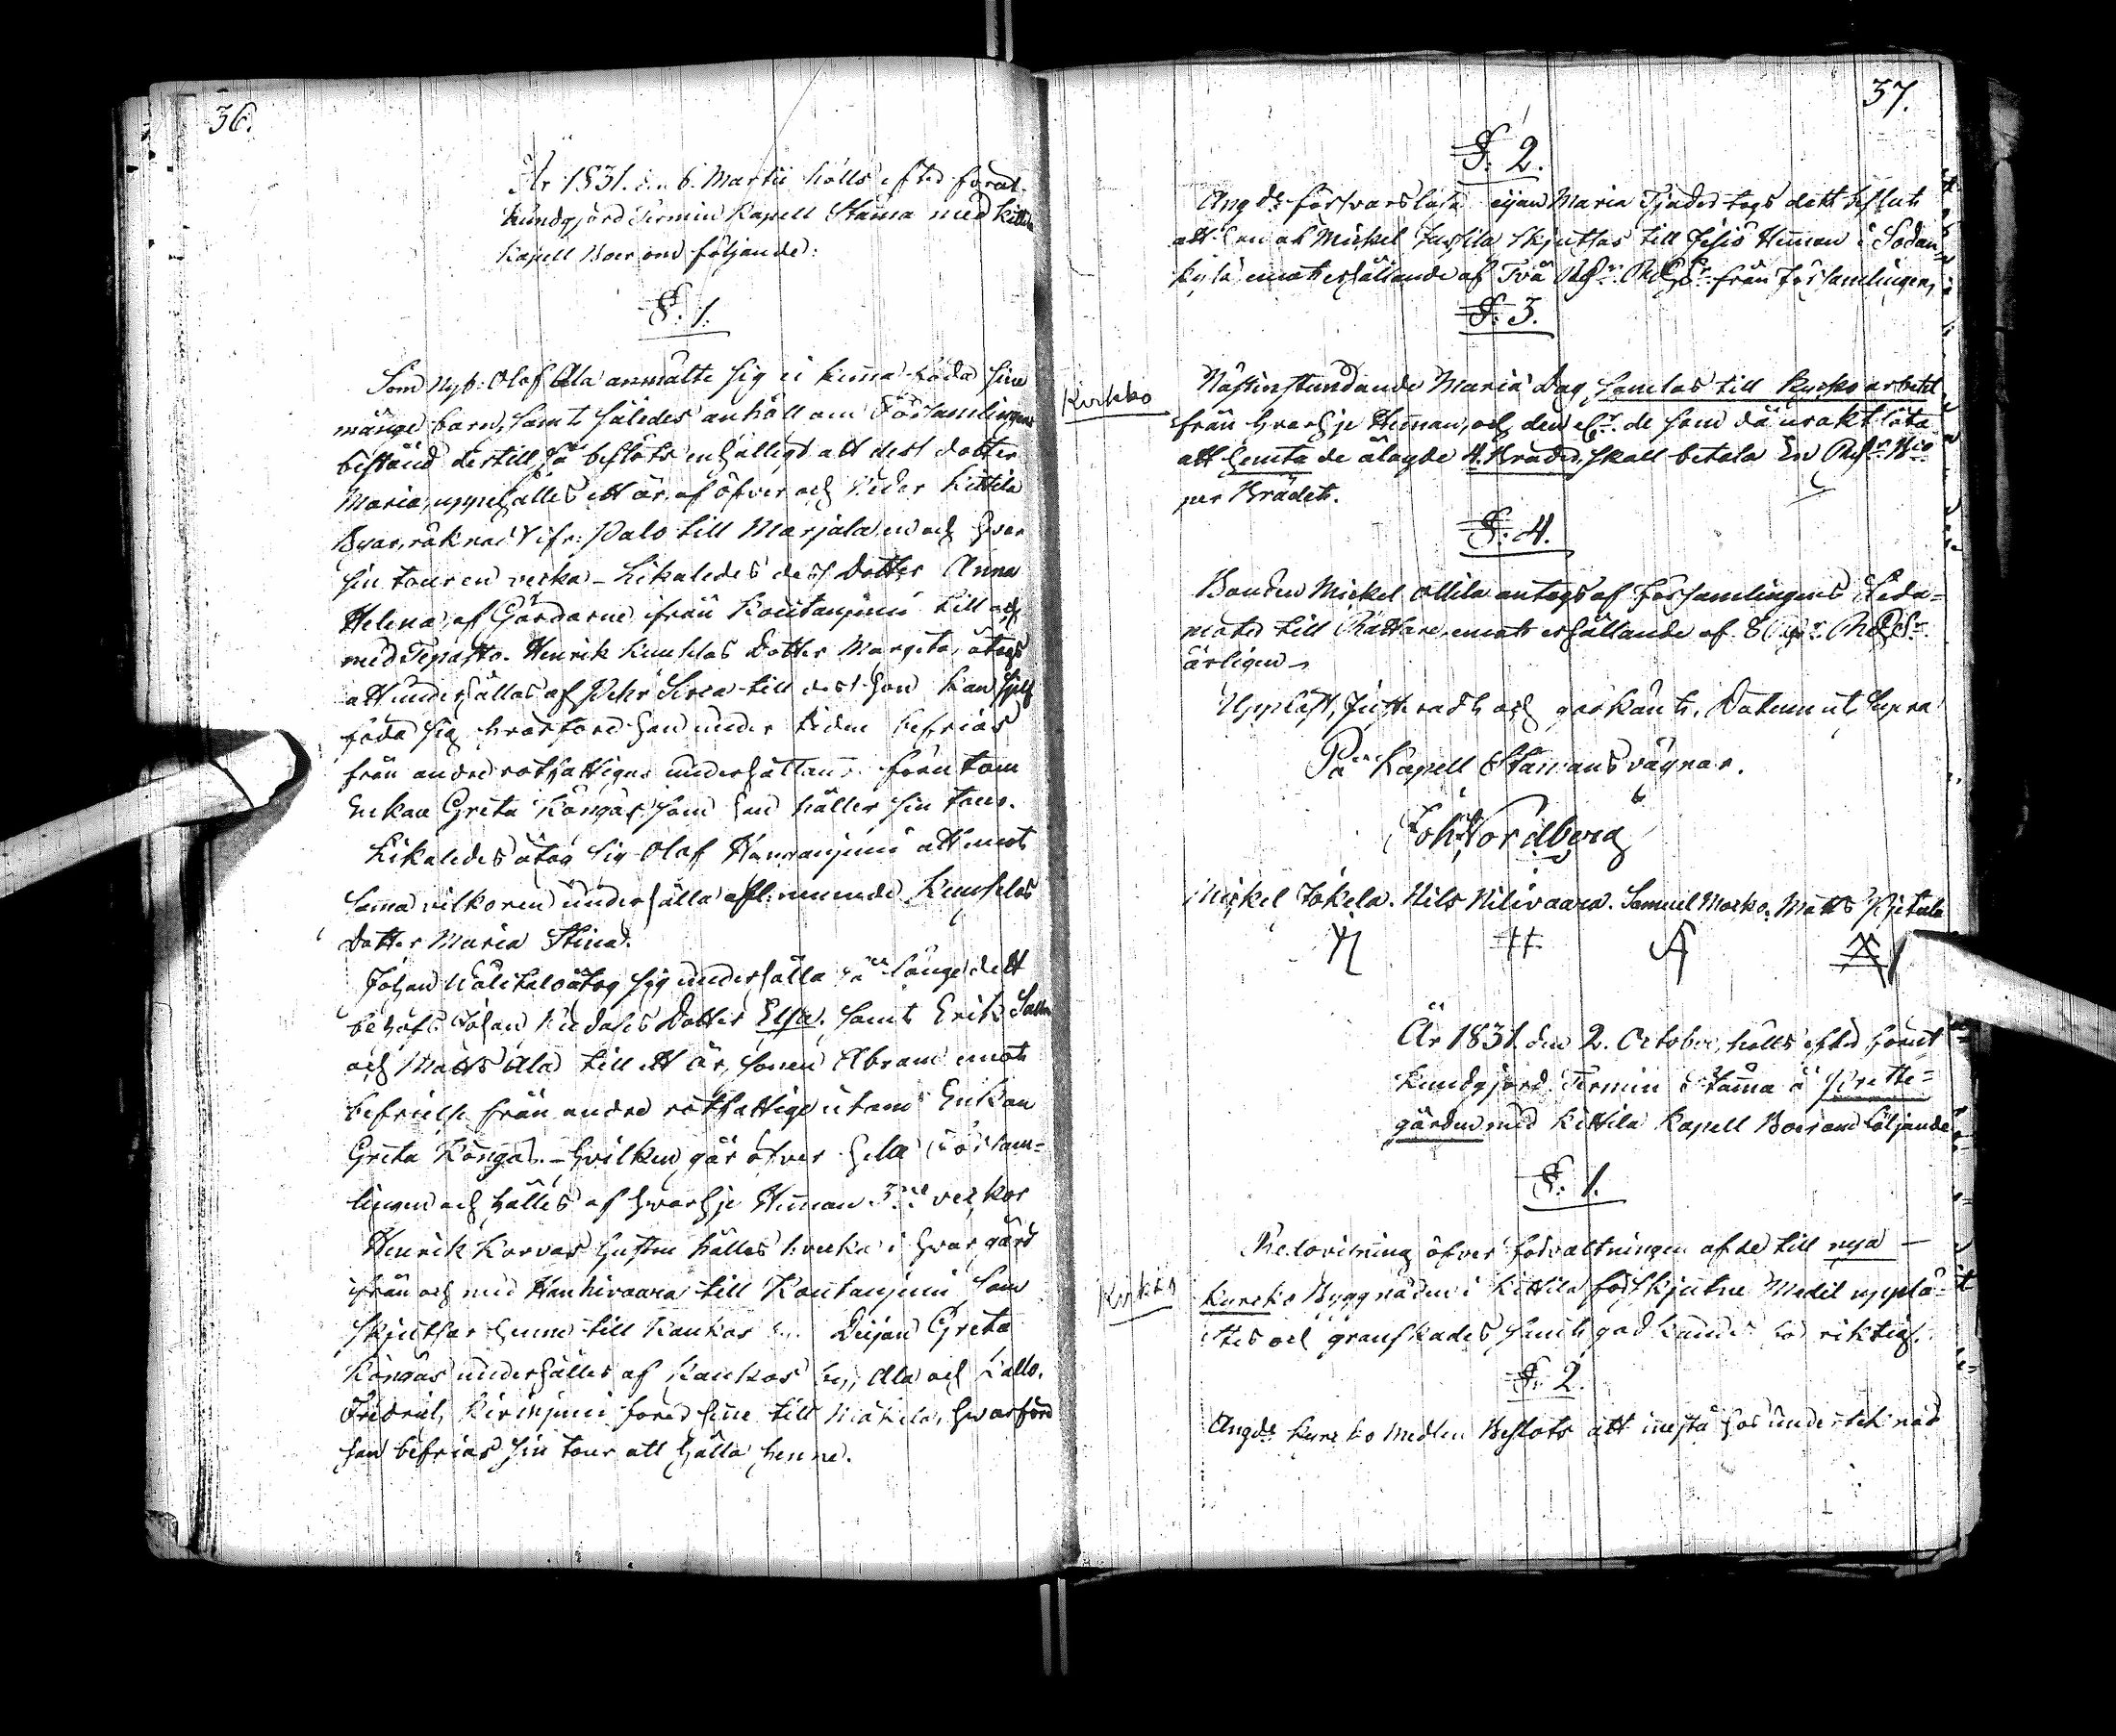 36.
År 1831. den 6. Martii hölls efter förut
kundgjord Termin Kapell Stäma med Kittilä
Kapell Boer om följande:
§. 1.
Som Nyb: Olof Ala anmälte sig ei kuña föda sine
många barn, samt således anhöll om Församlingens
bistånd dertill, så beslöts enhälligt att dess dotter
Maria, uppehålles ett år af öfver och Neder Kittilä
Byar, räknadt ifr: Palo till Marjala, en och hvar
sin tour en vecka - Likaledes dess Dotter Anna
Helena, af Gårdarne ifrån Koutanjemi till och
med Tepasto. Henrik Kuusklas Dotter Margeta, åtogs
att underhållas af Pehr Sirca till dess hon kan sjelf
föda sig hvarföre han under tiden befrias
från andre rotfattigas underhållan förutom
Enkan Greta Köngäs som han håller sin tour.
Likaledes åtog sig Olof Haruanjemi att emot
samma vilkoren underhålla Kuusklas
Dotter Maria Stina.
Johan Wälitalo åtog sig underhålla så länge dett
behöfs Johan Dotter Elsa. samt Erik
och Matts Ala till ett år, sonen Abram emot
befrielse från andre rotfattige utom Enkan
Greta Köngäs. - Hvilken går öfver hela Försam=
lingen och hålles af hvarhje Heman 3ne veckor
Henrik Korvas hustru hålles 1 vecka i hvar gård
ifrån och med Hanhivaara till Koutanjemi som
skjutsar henne till Kaukos Greta
Köngäs underhålles af Kaukos by, Ala och Kallo.
Fredrik Kirinjemi förer hene till hvarföre
han befrias sin tour att hålla henne.
37.
§. 2.
Angde försvarslösa Maria Tjäder togs dett beslut
att hon af Mickel skjutsas till Heman i Sodan=
kylä emot erhållande af Två från Församlingen,
§. 3.
Kirkko
Nästinstundande Maria Dag samlas till Kyrko arbetet
från hvarhje Heman, och den elr. de som då uraktlåta
att hemta de ålagde 4. Bräder, skall betala En
per Brädet.
§. 4.
Bonden Mickel Ollila antogs af Församlingens Leda=
möter till Rättare, emot erhållande af 8
årligen -
Uppläst, Justeradt och godkänt, Datum ut Supra
På Kapell Stämans vägnar.
Joh Nordberg
Mickel Jokela. Nils Nilivaara. Samuel Marko. Matts Pijetula
År 1831. den 2. October, hölls efter förut
kundgjord Termin Stäma å Preste=
gården med Kittilä Kapell Boer om följande
§. 1.
Redovisning öfver förvaltningen af de till nya -
Kirkko
Kyrko Byggnaden i Kittilä förskjutne Medel upplä=
stes och granskades samt godkändes för riktig.
§. 2.
Angde Kyrko Medlen Beslöts att inestå hos undertecknad